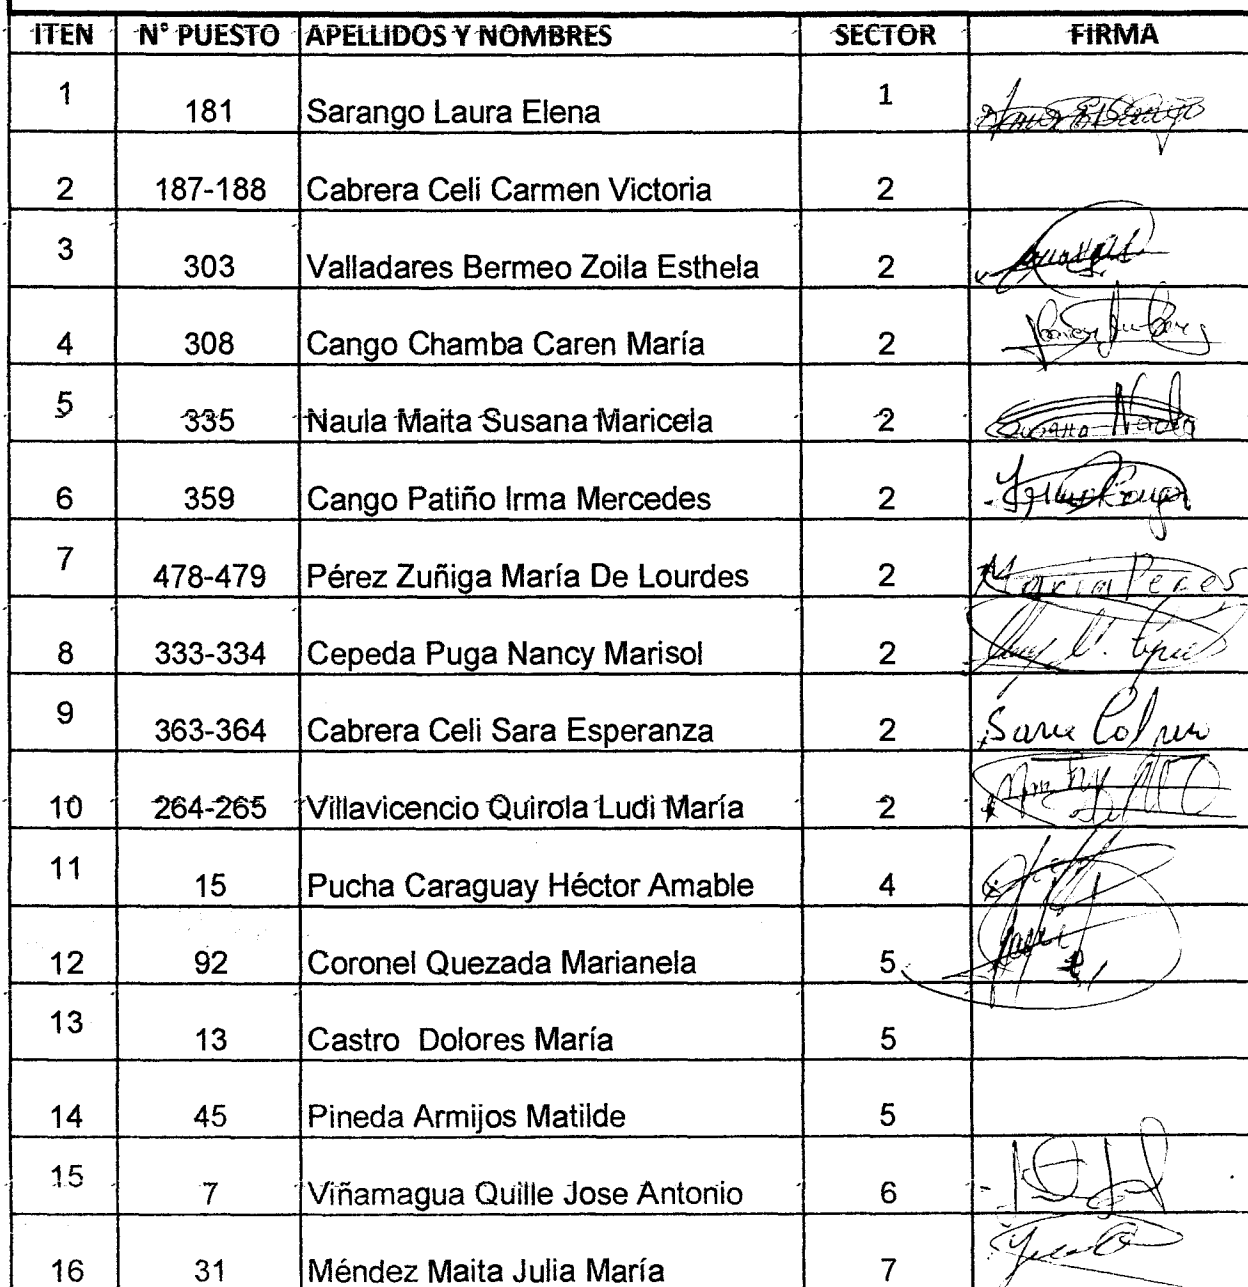 ITEN N° PUESTO APELLIDOS Y NOMBRES SECTOR FIRMA
1 181 Sarango Laura Elena 1
2 187-188 Cabrera Celi Carmen Victoria 2
3 303 Valladares Bermeo Zoila Esthela 2
4 308 Cango Chamba Caren María 2
5 335 Naula Maita Susana Maricela 2 Susana Naula
6 359 Cango Patiño Irma Mercedes 2 Irma Cango
7 478-479 Pérez Zuñiga María De Lourdes 2 Maria Peres
8 333-334 Cepeda Puga Nancy Marisol 2
9 363-364 Cabrera Celi Sara Esperanza 2 Sara
10 264-265 Villavicencio Quirola Ludi María 2
11 15 Pucha Caraguay Héctor Amable 4
12 92 Coronel Quezada Marianela 5
13 13 Castro Dolores María 5
14 45 Pineda Armijos Matilde 5
15 7 Viñamagua Quille Jose Antonio 6
16 31 Méndez Maita Julia María 7